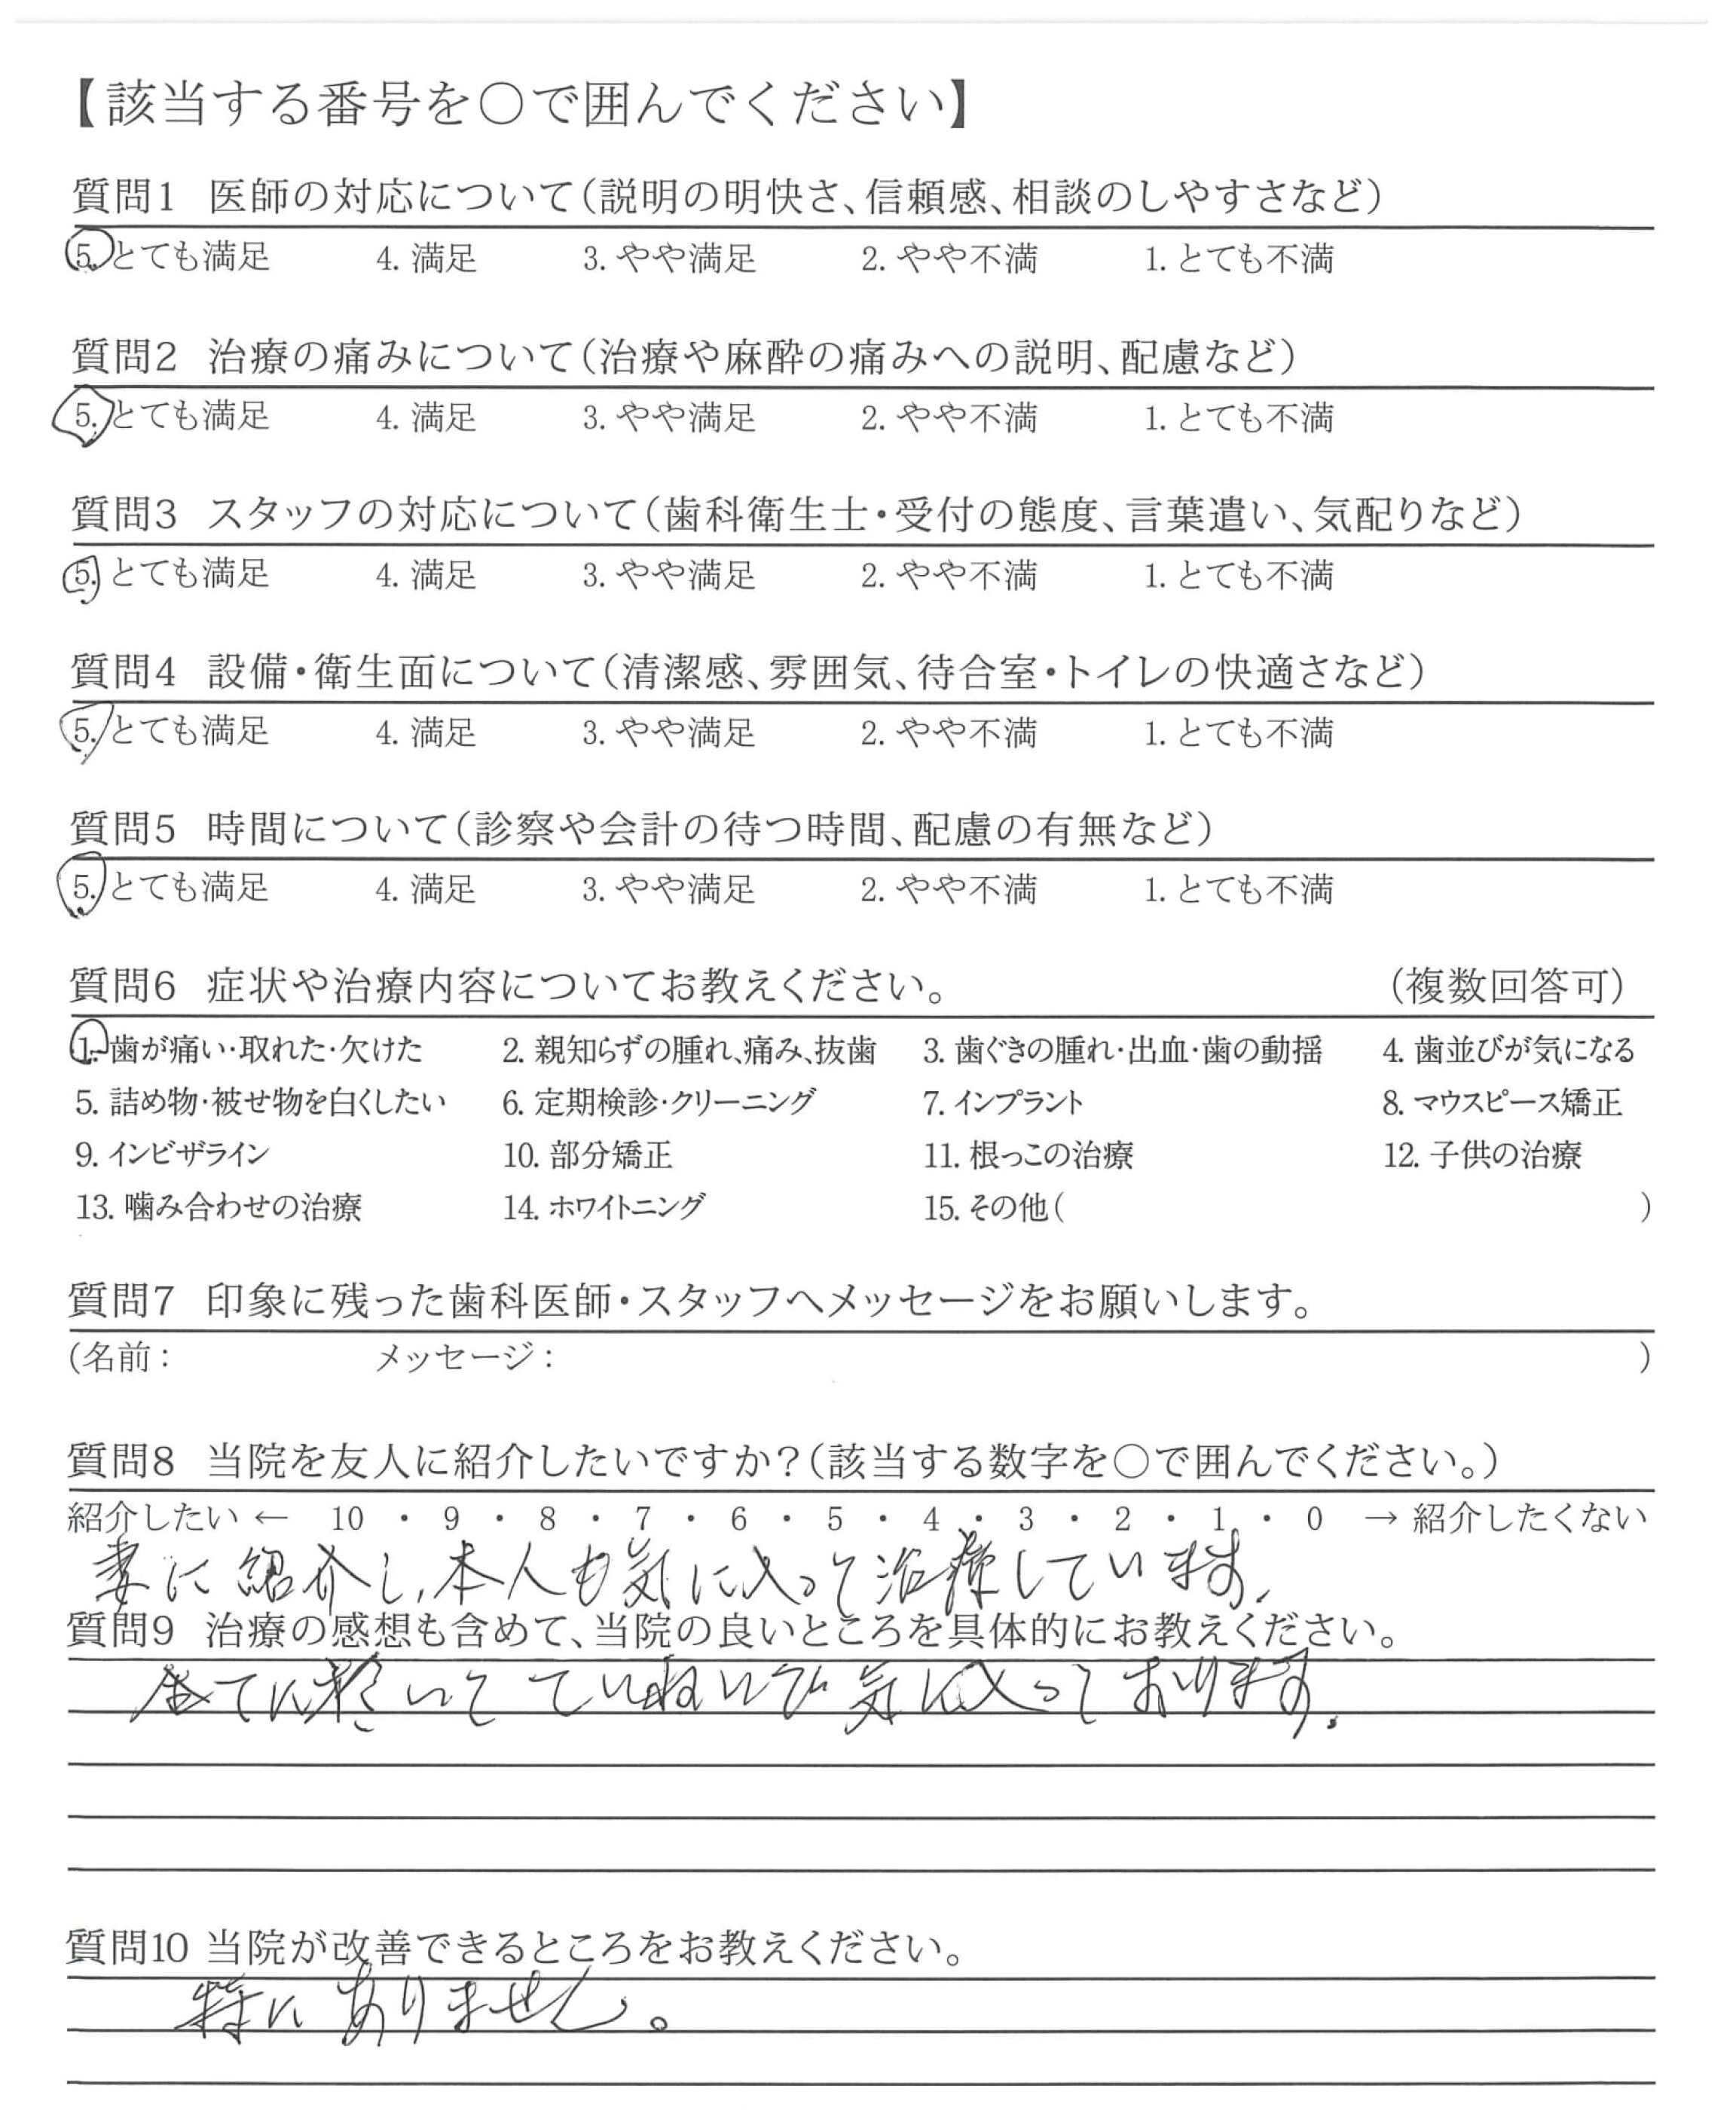 【該当する番号を○で囲んでください】
質問1 医師の対応について(説明の明快さ、信頼感、相談のしやすさなど)
5. とても満足 4. 満足 3. やや満足 2. やや不満 1. とても不満
質問2 治療の痛みについて(治療や麻酔の痛みへの説明、配慮など)
5. とても満足 4. 満足 3. やや満足 2. やや不満 1. とても不満
質問3 スタッフの対応について(歯科衛生士・受付の態度、言葉遣い、気配りなど)
5. とても満足 4. 満足 3. やや満足 2. やや不満 1. とても不満
質問4 設備・衛生面について(清潔感、雰囲気、待合室・トイレの快適さなど)
5. とても満足 4. 満足 3. やや満足 2. やや不満 1. とても不満
質問5 時間について(診察や会計の待つ時間、配慮の有無など)
5. とても満足 4. 満足 3. やや満足 2. やや不満 1. とても不満
質問6 症状や治療内容についてお教えください。 (複数回答可)
1. 歯が痛い・取れた・欠けた 2. 親知らずの腫れ、痛み、抜歯 3. 歯ぐきの腫れ・出血・歯の動揺 4. 歯並びが気になる
5. 詰め物・被せ物を白くしたい 6. 定期検診・クリーニング 7. インプラント 8. マウスピース矯正
9. インビザライン 10. 部分矯正 11. 根っこの治療 12. 子供の治療
13. 噛み合わせの治療 14. ホワイトニング 15. その他( )
質問7 印象に残った歯科医師・スタッフへメッセージをお願いします。
(名前: メッセージ: )
質問8 当院を友人に紹介したいですか?(該当する数字を○で囲んでください。)
紹介したい ← 10 ・ 9 ・ 8 ・ 7 ・ 6 ・ 5 ・ 4 ・ 3 ・ 2 ・ 1 ・ 0 → 紹介したくない
妻に紹介し、本人も気に入って治療しています。
質問9 治療の感想も含めて、当院の良いところを具体的にお教えください。
全てに於いてていねいで気に入っております。
質問10 当院が改善できるところをお教えください。
特にありません。